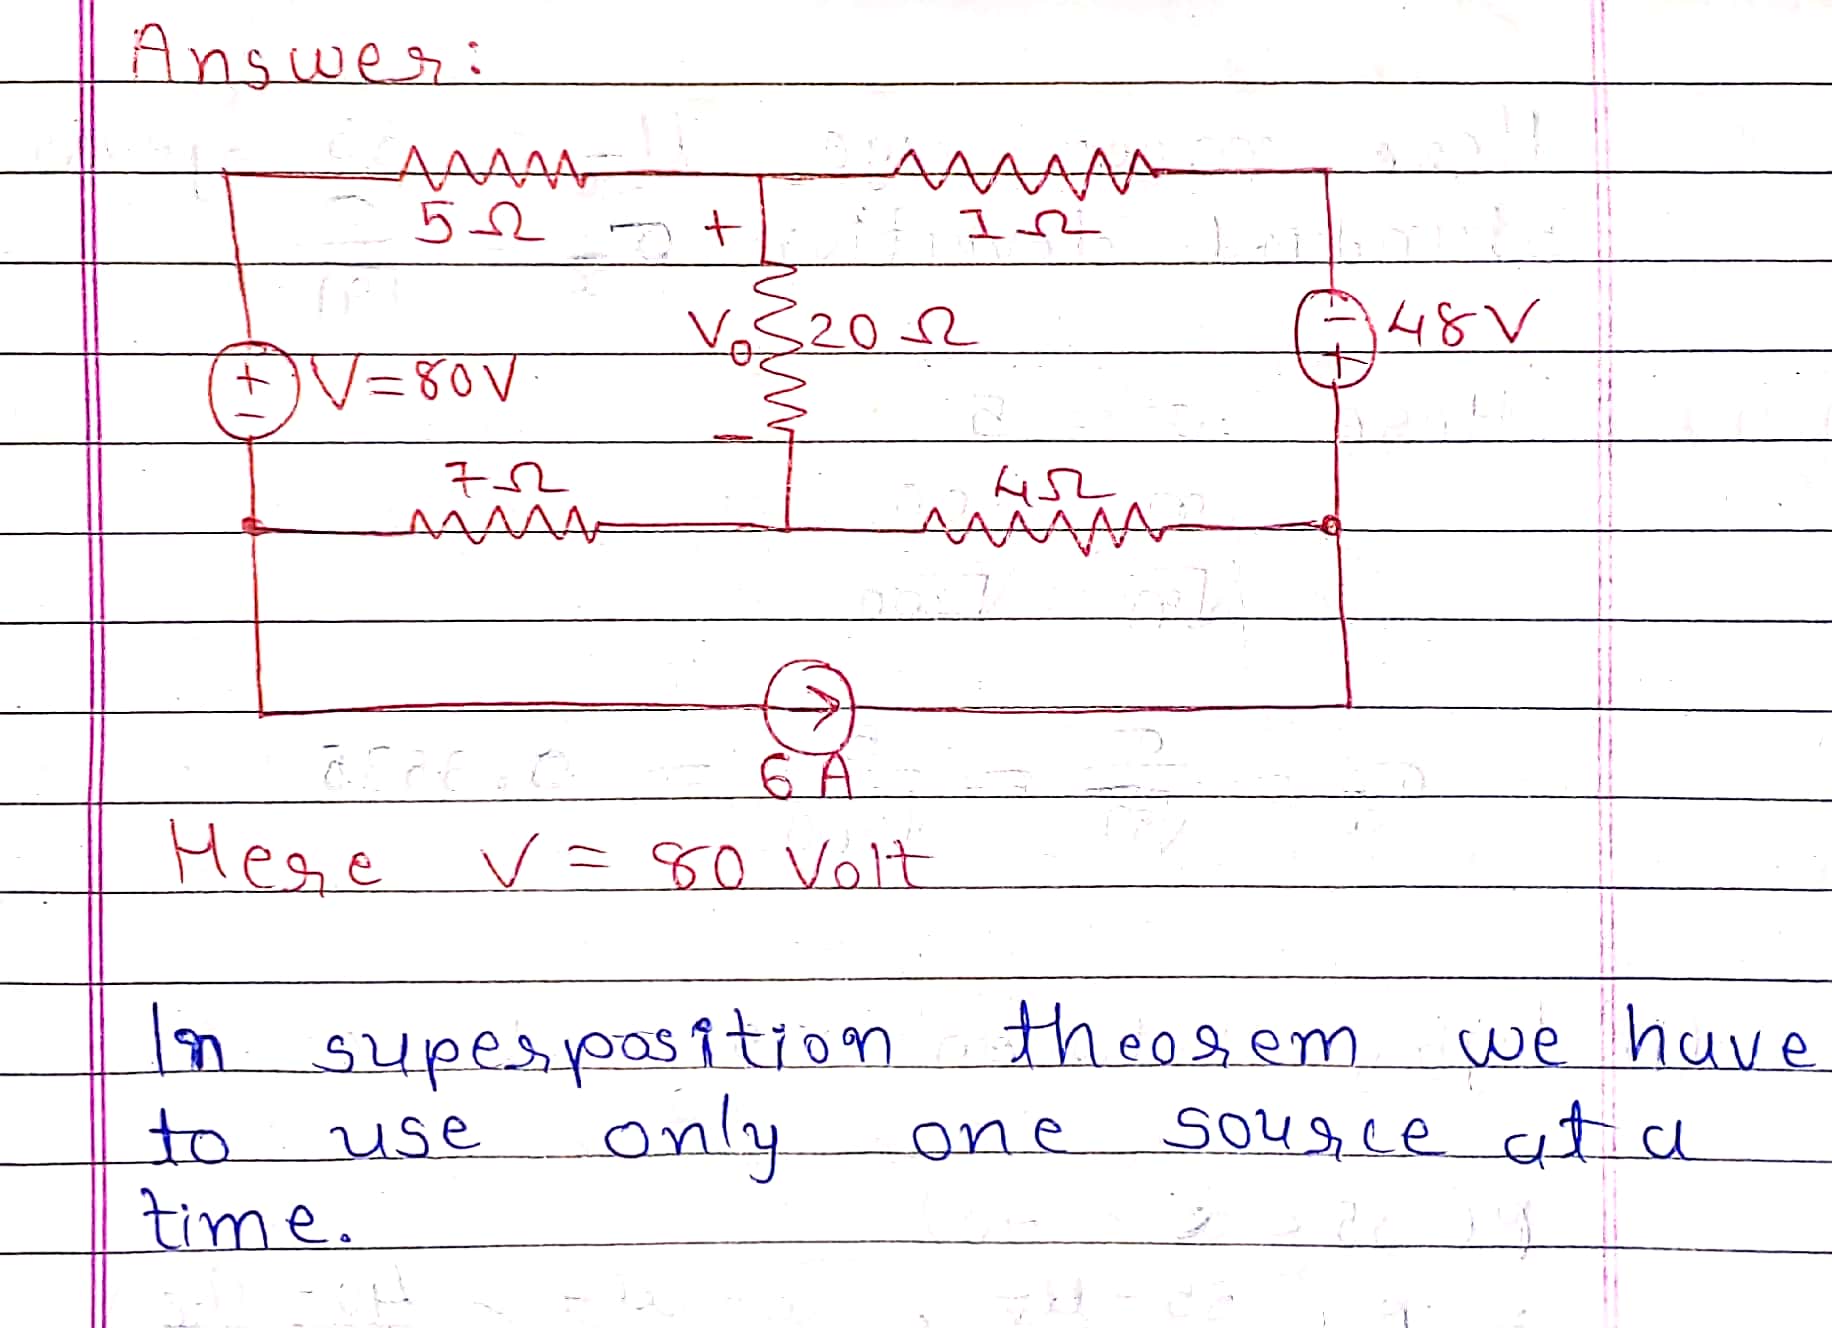 Answer:
5Ω
1Ω
+
V₀
20Ω
-
48V
+
+
-
V=80V
7Ω
4Ω
6A
Here V = 80 Volt
In superposition theorem we have
to use only one source at a
time.